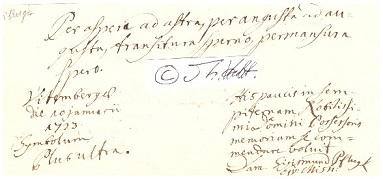 Per aspera ad astra, per angusta ad au-
gusta, transitura sperno, permansura
spero.
Vitembergæ
die januarii
1713
Symbolum
Plus ultra.
His paucis in sem-
piternam Nobilissi-
mi Domini Possessoris
memoriam se com-
mendare voluit
Sigismund